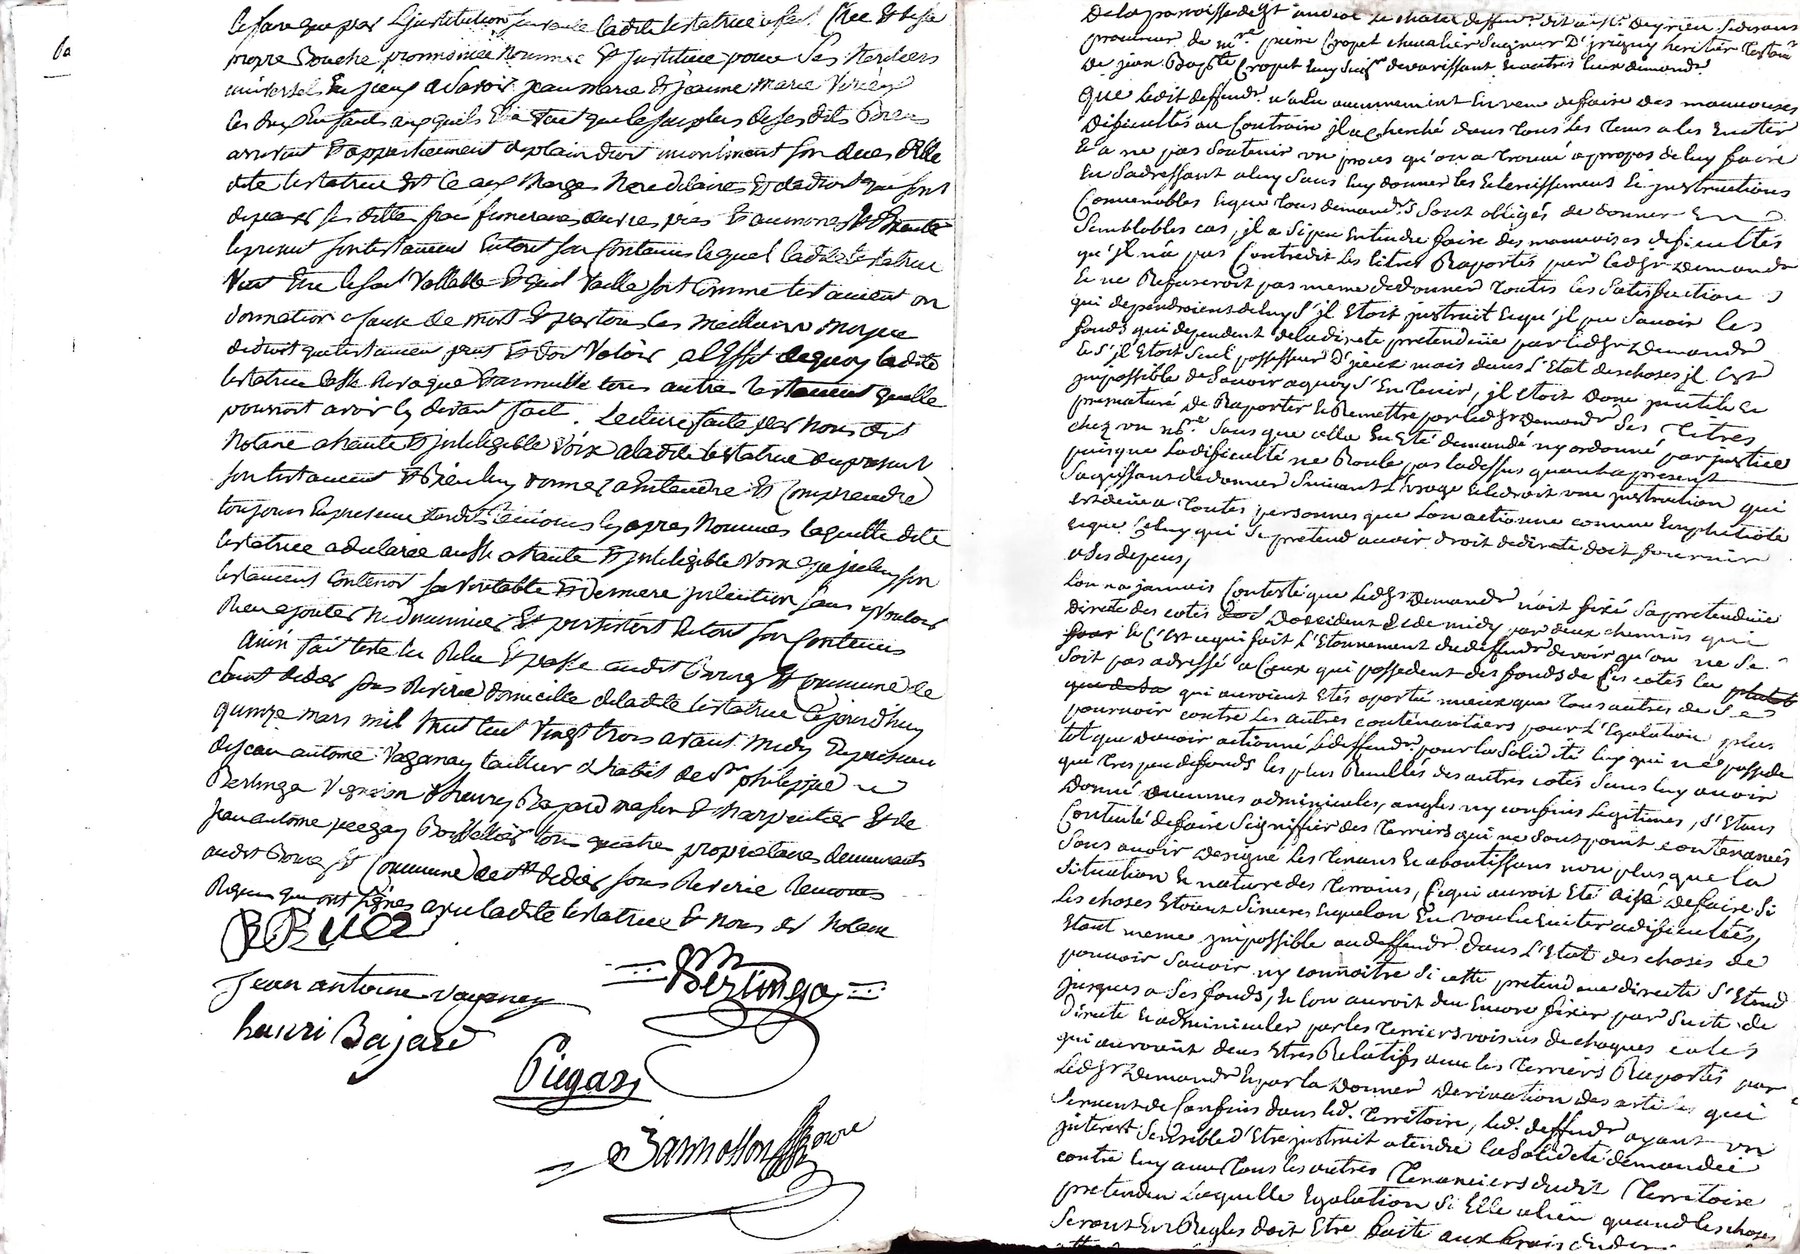 6a
ce fait que par l'institution ladite testatrice a fait Cree et de sa
propre Bouche prononcée Nommée Et Justituee pour Ses Herdiers
universel En jceux a Savoir jean marie & jeanne marie
ces deux Enfants auxquels Elle Veut que le surplus de ses dits Biens
arrivent & appartiennent de plain droit incontinent son deces
dite testatrice Et ce aux Charges Hereditaires Et de droit qui sont
de payer ses dittes frai funeraires œuvres pies & aumones
le present son testament Entout son Contenus lequel ladite testatrice
Veut Etre le seul Vallable Et quil Vaille soit Comme testament ou
donnation a Cause de mort Et par tous les Meilleurs moyens
de droit que testamen peut Et doit Valoir, a l'Effet de quoy ladite
testatrice Casse Revoque & annulle tous autre testament quelle
pourroit avoir Cy devant fait. Lecture faite par Nous dit
Notaire a haute & jntelegible Voix a ladite testatrice du present
son testament & Bien luy donner a Entendre Et Comprendre
toujours En presence desdits temoins Cy apres Nommés laquelle dite
testatrice a declaree aussi a haute & jntelegible Voix que jceluy son
testament Contenoit sa Veritable & derniere jntention sans y Vouloir
Rien ajouter Ni diminuer Et persistent Entout son Contenus
Ainsi fait testé lu Relu Et passé audit Bourg Et Commune de
Saint didier sous Riverie domicille de ladite testatrice Cejourdhuy
quinze mars mil huit cent Vingt trois avant midy En presence
de jean antoine Vaganay tailleur d'habit de St philippe
Berlinga Vigneron d'henry Bajard masson & charpentier Et de
jean antoine piegay tous quatre proprietaires demeurants
audit Bourg Et Commune de St didier sous Riverie temoins
Requis qui ont Signés avec ladite testatrice Et Nous dit Notaire
jean antoine vaganay
Berlinga
henri Bajard
Piegay
De la parroisse de St andeol le chatel deffendr dit au Sr Sedisant
procureur de mre pierre Croppet chevalier Seigneur D'jrigny heritier Testamre
De jean Bapste Croppet Demandr
Que ledit deffendr n'a Eu aucunement En veue de faire des mauvaises
Dificultés au Contraire jl a Cherché dans tous les tems a les Eviter
Et a ne pas Soutenir un proces qu'on a trouvé a propos de luy faire
En S'adressant a luy Sans luy donner les Eclercissements Et jnstructions
Convenables Et que tous demandrs Sont obligés de donner En
Semblables cas, jl a Si peu Entendu faire des mauvaises dificultés
qu'jl n'a pas Contredit les titres Raportés par ledt Sr Demandr
Et ne Refuseroit pas meme de donner toutes les Satisfaction
qui dependroient de luy S'jl Etoit jnstruit Et qu'jl peu Savoir les
fonds qui dependent de la directe pretendüe par ledt Sr Demandr
Et S'jl Etoit Seul possesseur D'jceux mais dans l'Etat des choses jl Est
jmpossible de Savoir a quoy S'En tenir, jl Etoit donc jnutile Et
prematuré de Raporter Et Remettre par ledt Sr Demandr Ses titres
chez un nre Sans que cella Eu Eté demandé ny ordonné par justice
puisque la dificulté ne Roule pas la dessus quant a present
S'agissant de donner Suivant l'usage Et le droit une jnstruction qui
est deüe a toutes personnes que lon actionne comme Emphiteote
Et que Celuy qui Se pretend avoir droit de directe doit fournir
a Ses depens,
Lon na jamais Contesté que ledt Sr Demandr n'ait fixé Sa pretendüe
Directe des cotés D'occident Et de midy par deux chemins qui
Et C'est ce qui fait l'Etonnement du deffendr de voir qu'on ne Se
Soit pas adressé a Ceux qui possedent des fonds de Ces cotés la plutot
que de sa qui auroient Etés aporté mieux que tous autres de Se
pourvoir contre les autres contenanciers pour l'Egalation plus
tot que davoir actionné le deffendr pour la Solidité luy qui ne possede
que tres peu de fonds les plus Reculles des autres cotés Sans luy avoir
Donné aucunes adminicules, angles ny confins legitimes, S'Etans
Contenté de faire Signiffier des terriers qui ne Sont point contenancés
Sans avoir Designé les tenans Et aboutissans non plus que la
Situation Et nature des terrains, Ce qui auroit Eté aisé de faire Si
les choses Etoient Sinceres Et que lon Eu voulu Eviter a dificultés,
Etant meme jmpossible au deffendr dans l'Etat des choses de
pouvoir Savoir ny connoitre Si cette pretendüe directe S'Etend
jusques a Ses fonds, Et lon auroit deu Encore fixer par Suite de
Directe Et adminiculer par les terriers voisins de chaques cotés
qui auroient deus Etre Relatifs avec les terriers Raportés par
ledt Sr Demandr Et par la Donner derivation des articles qui
Servent de Confins dans led. territoire, led. deffendr ayant un
jnterest Sensible d'Etre jnstruit atendre la Solidité demandée
contre luy avec tous les autres tenanciers dudit territoire
pretendu laquelle Egalation Si Elle a lieu quand les choses
Seront En Regles doit Etre faite aux frais dudit